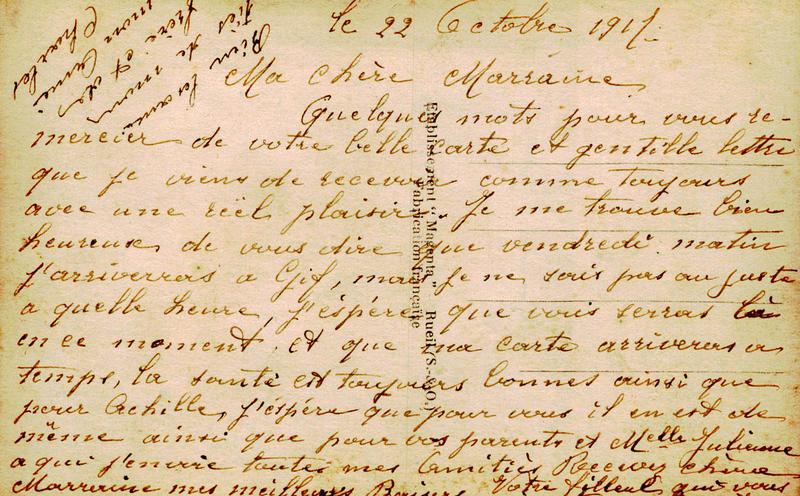 le 22 Octobre 1917.
Ma chère Marraine
Quelques mots pour vous re-
mercier de votre belle carte et gentille lettre
que je viens de recevoir comme toujours
avec une réel plaisir. Je me trouve bien
heureuse de vous dire que vendredi matin
j'arriverrais a Gif, mais je ne sais pas au juste
a quelle heure, j'éspére que vous serras là
en ce moment et que ma carte arriveras a
temps, la santé est toujours bonnes ainsi que
pour Achille, j'éspére que pour vous il en est de
même ainsi que pour vos parents et Melle Julienne
a qui j'envoie toutes mes Amitiés Recevez chère
Marraine mes meilleurs Baisers Votre filleul qui vous
Bien
de mon
frère et de
mon
Charles
Etablissement "Magenta" - Rueil (S.-&-O.)
Fabrication Française